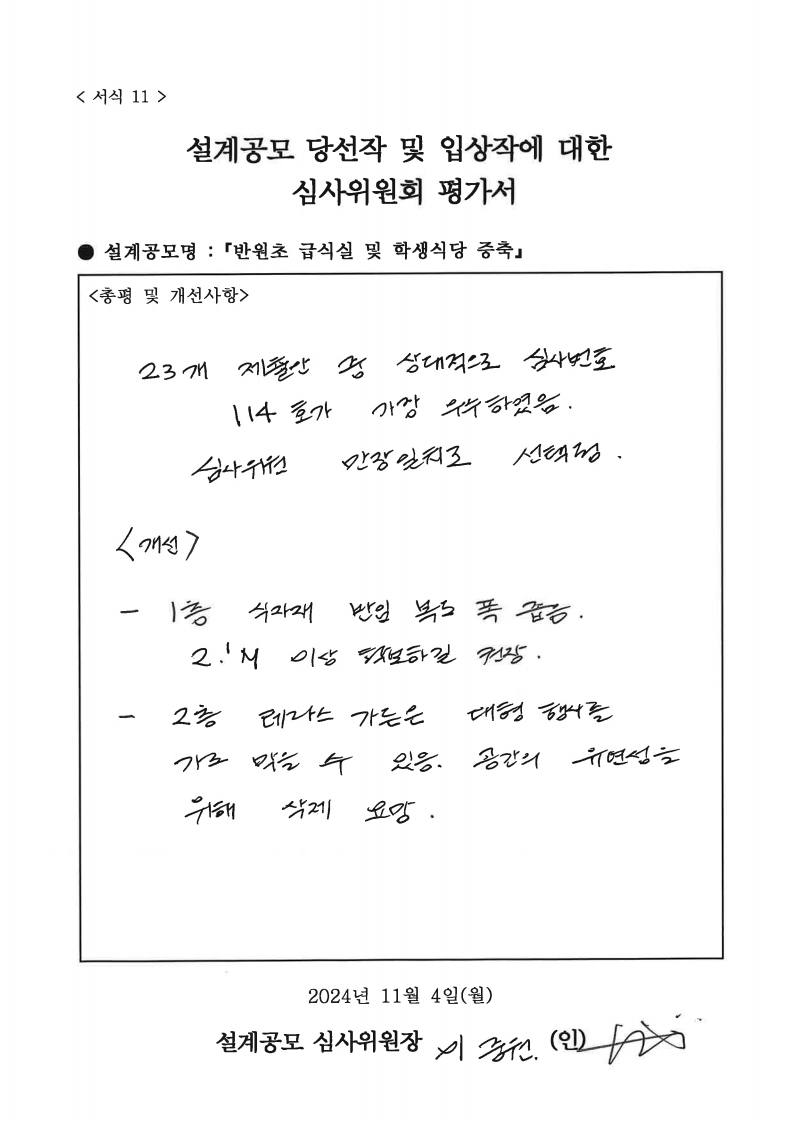 < 서식 11 >
설계공모 당선작 및 입상작에 대한
심사위원회 평가서
● 설계공모명 : 『반원초 급식실 및 학생식당 증축』
<총평 및 개선사항>
23개 제출안 중 상대적으로 심사번호
114 호가 가장 우수하였음.
심사위원 만장일치로 선택됨.
<개선>
- 1층 식자재 반입 복도 폭 좁음.
2.1M 이상 확보하길 권장.
- 2층 테라스 가든은 대형 행사를
가로 막을 수 있음. 공간의 유연성을
위해 삭제 요망.
2024년 11월 4일(월)
설계공모 심사위원장 이 (인)